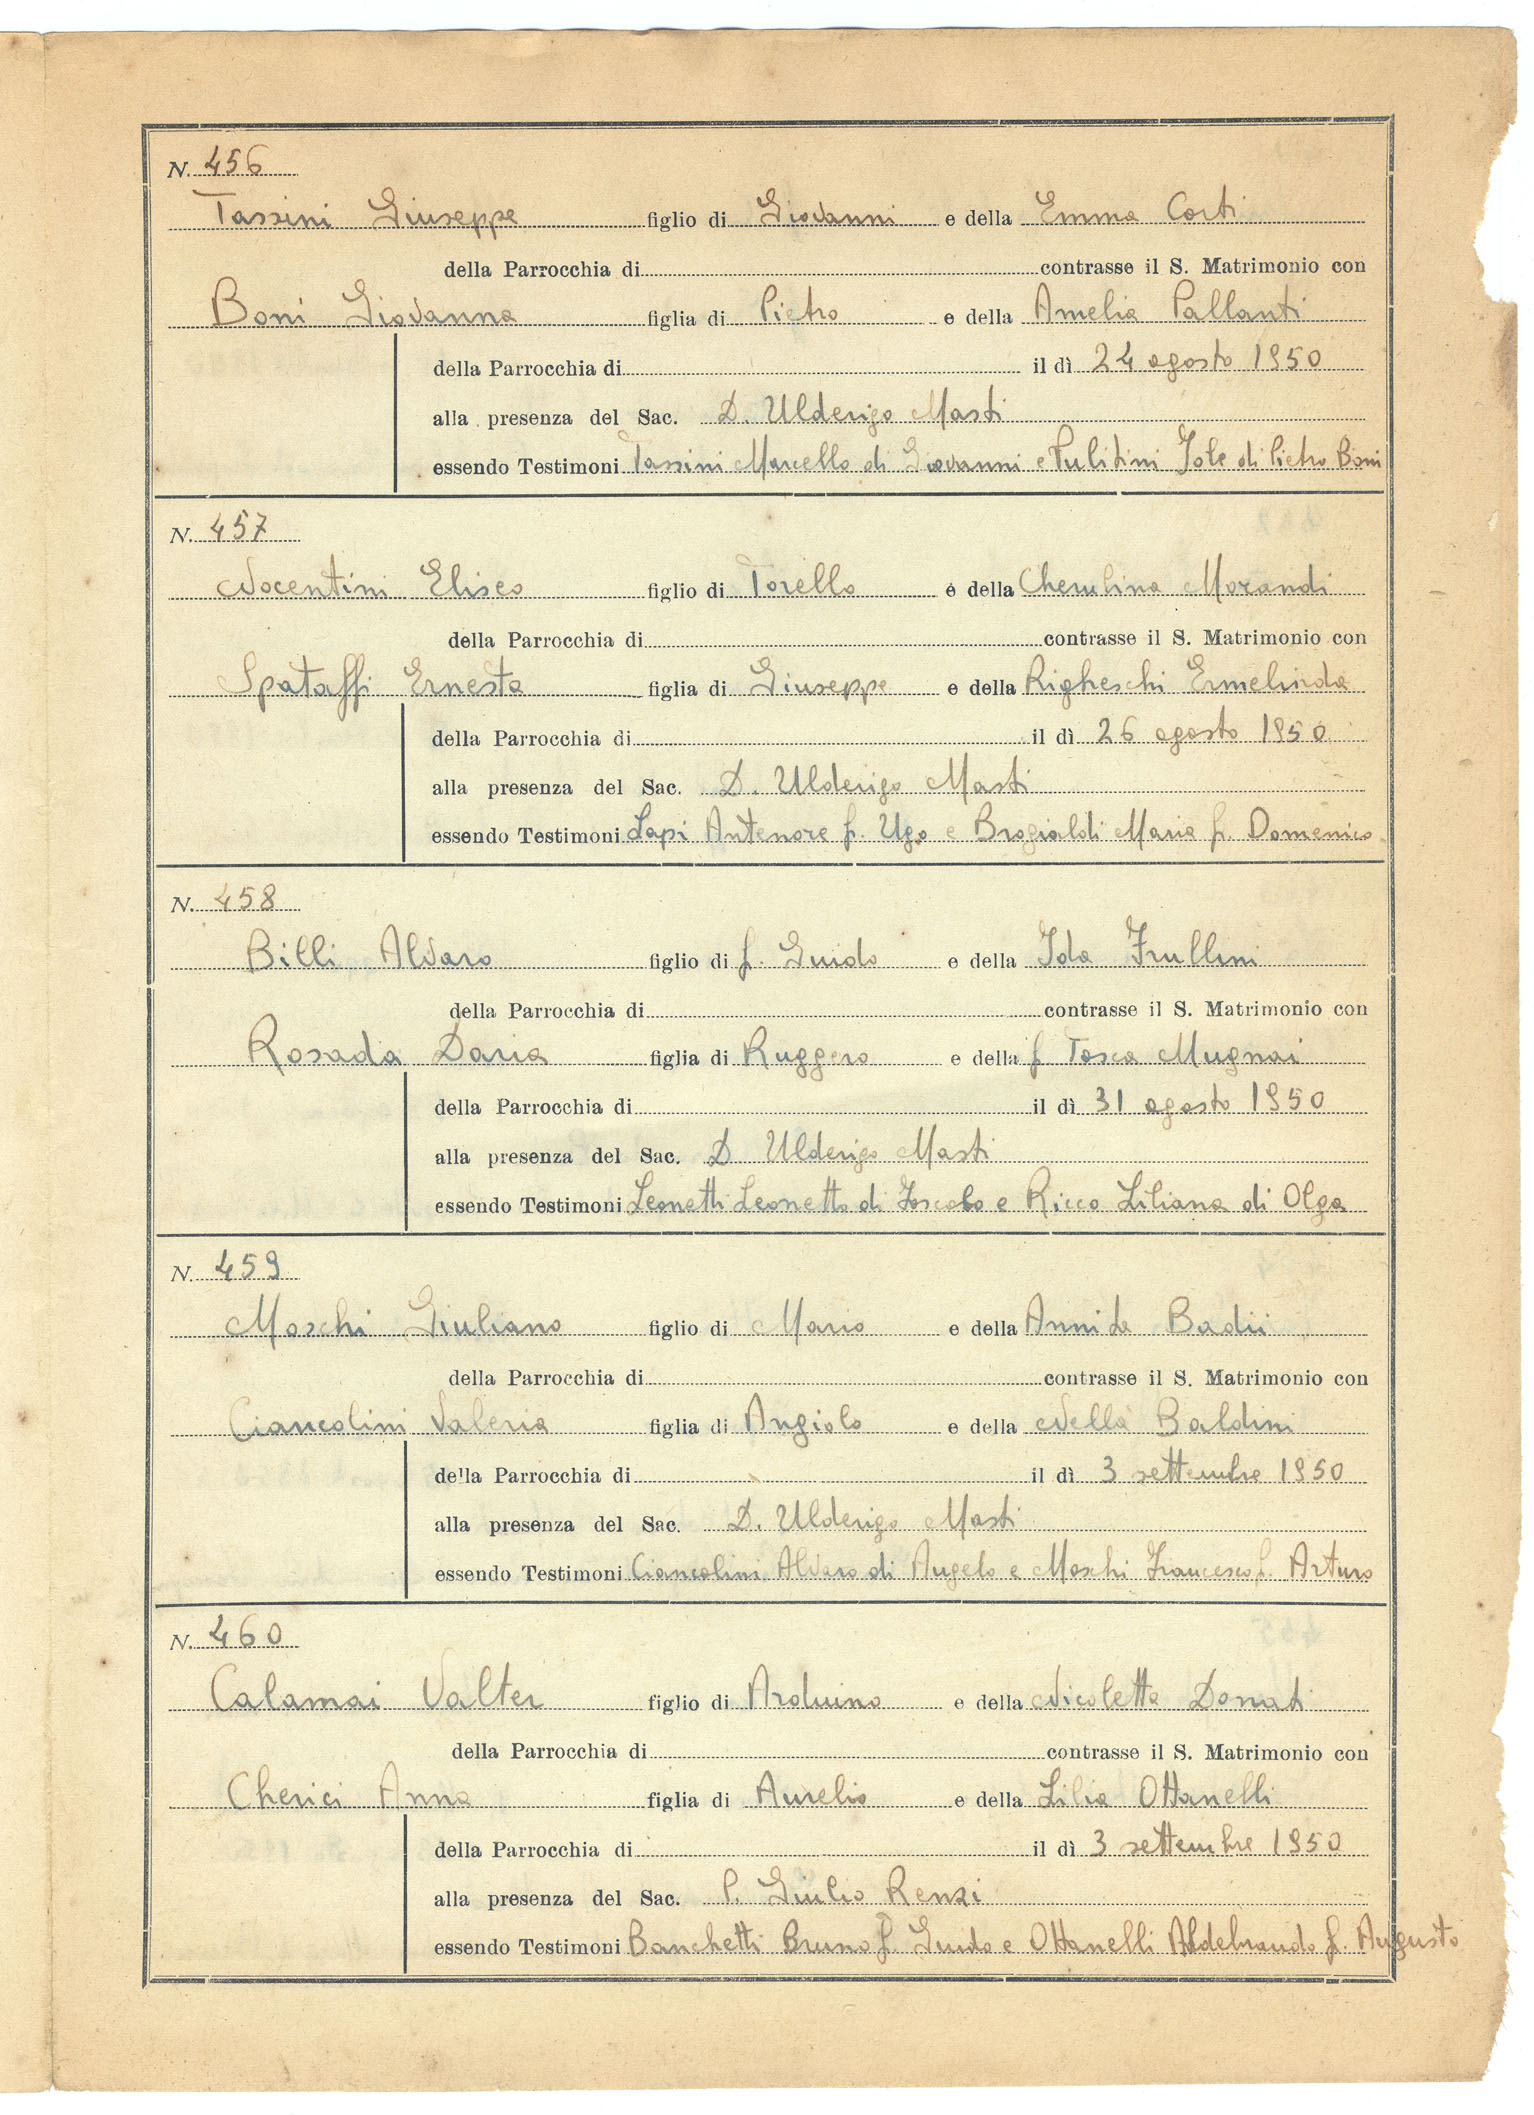 N. 456
Tassini Giuseppe figlio di Giovanni e della Emma Corti
della Parrocchia di contrasse il S. Matrimonio con
Boni Giovanna figlia di Pietro e della Amelia Pallanti
della Parrocchia di il dì 24 agosto 1950
alla presenza del Sac. D. Ulderigo Masti
essendo Testimoni Tassini Marcello di Giovanni e Pulitini Jole di Pietro Boni
N. 457
Nocentini Eliseo figlio di Torello e della Cherubina Morandi
della Parrocchia di contrasse il S. Matrimonio con
Spataffi Ernesta figlia di Giuseppe e della Righeschi Ermelinda
della Parrocchia di il dì 26 agosto 1950
alla presenza del Sac. D. Ulderigo Masti
essendo Testimoni Lapi Antenore f. Ugo e Brogialdi Maria f. Domenico
N. 458
Billi Alvaro figlio di f. Guido e della Ida Frullini
della Parrocchia di contrasse il S. Matrimonio con
Rosada Daria figlia di Ruggero e della f Tosca Mugnai
della Parrocchia di il dì 31 agosto 1950
alla presenza del Sac. D Ulderigo Masti
essendo Testimoni Leonetti Leonetto di Foscolo e Ricco Liliana di Olga
N. 459
Moschi Giuliano figlio di Mario e della Annita Badii
della Parrocchia di contrasse il S. Matrimonio con
Ciancolini Valeria figlia di Angiolo e della Nella Baldini
della Parrocchia di il dì 3 settembre 1950
alla presenza del Sac. D. Ulderigo Masti
essendo Testimoni Ciancolini Alvaro di Angelo e Moschi Francesco f. Arturo
N. 460
Calamai Valter figlio di Arduino e della Nicoletta Donati
della Parrocchia di contrasse il S. Matrimonio con
Cherici Anna figlia di Aurelio e della Lilia Ottanelli
della Parrocchia di il dì 3 settembre 1950
alla presenza del Sac. P. Giulio Renzi
essendo Testimoni Banchetti Bruno f. Guido e Ottanelli Aldebrando f. Augusto